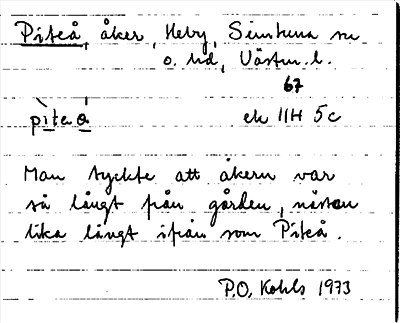 Piteå, åker, Heby, Simtuna sn
o. hd, Västm. l.
67
pìteá ek 11H 5c
Man tyckte att åkern var
så långt från gården, nästan
lika långt ifrån som Piteå.
P.O. Kohls 1973